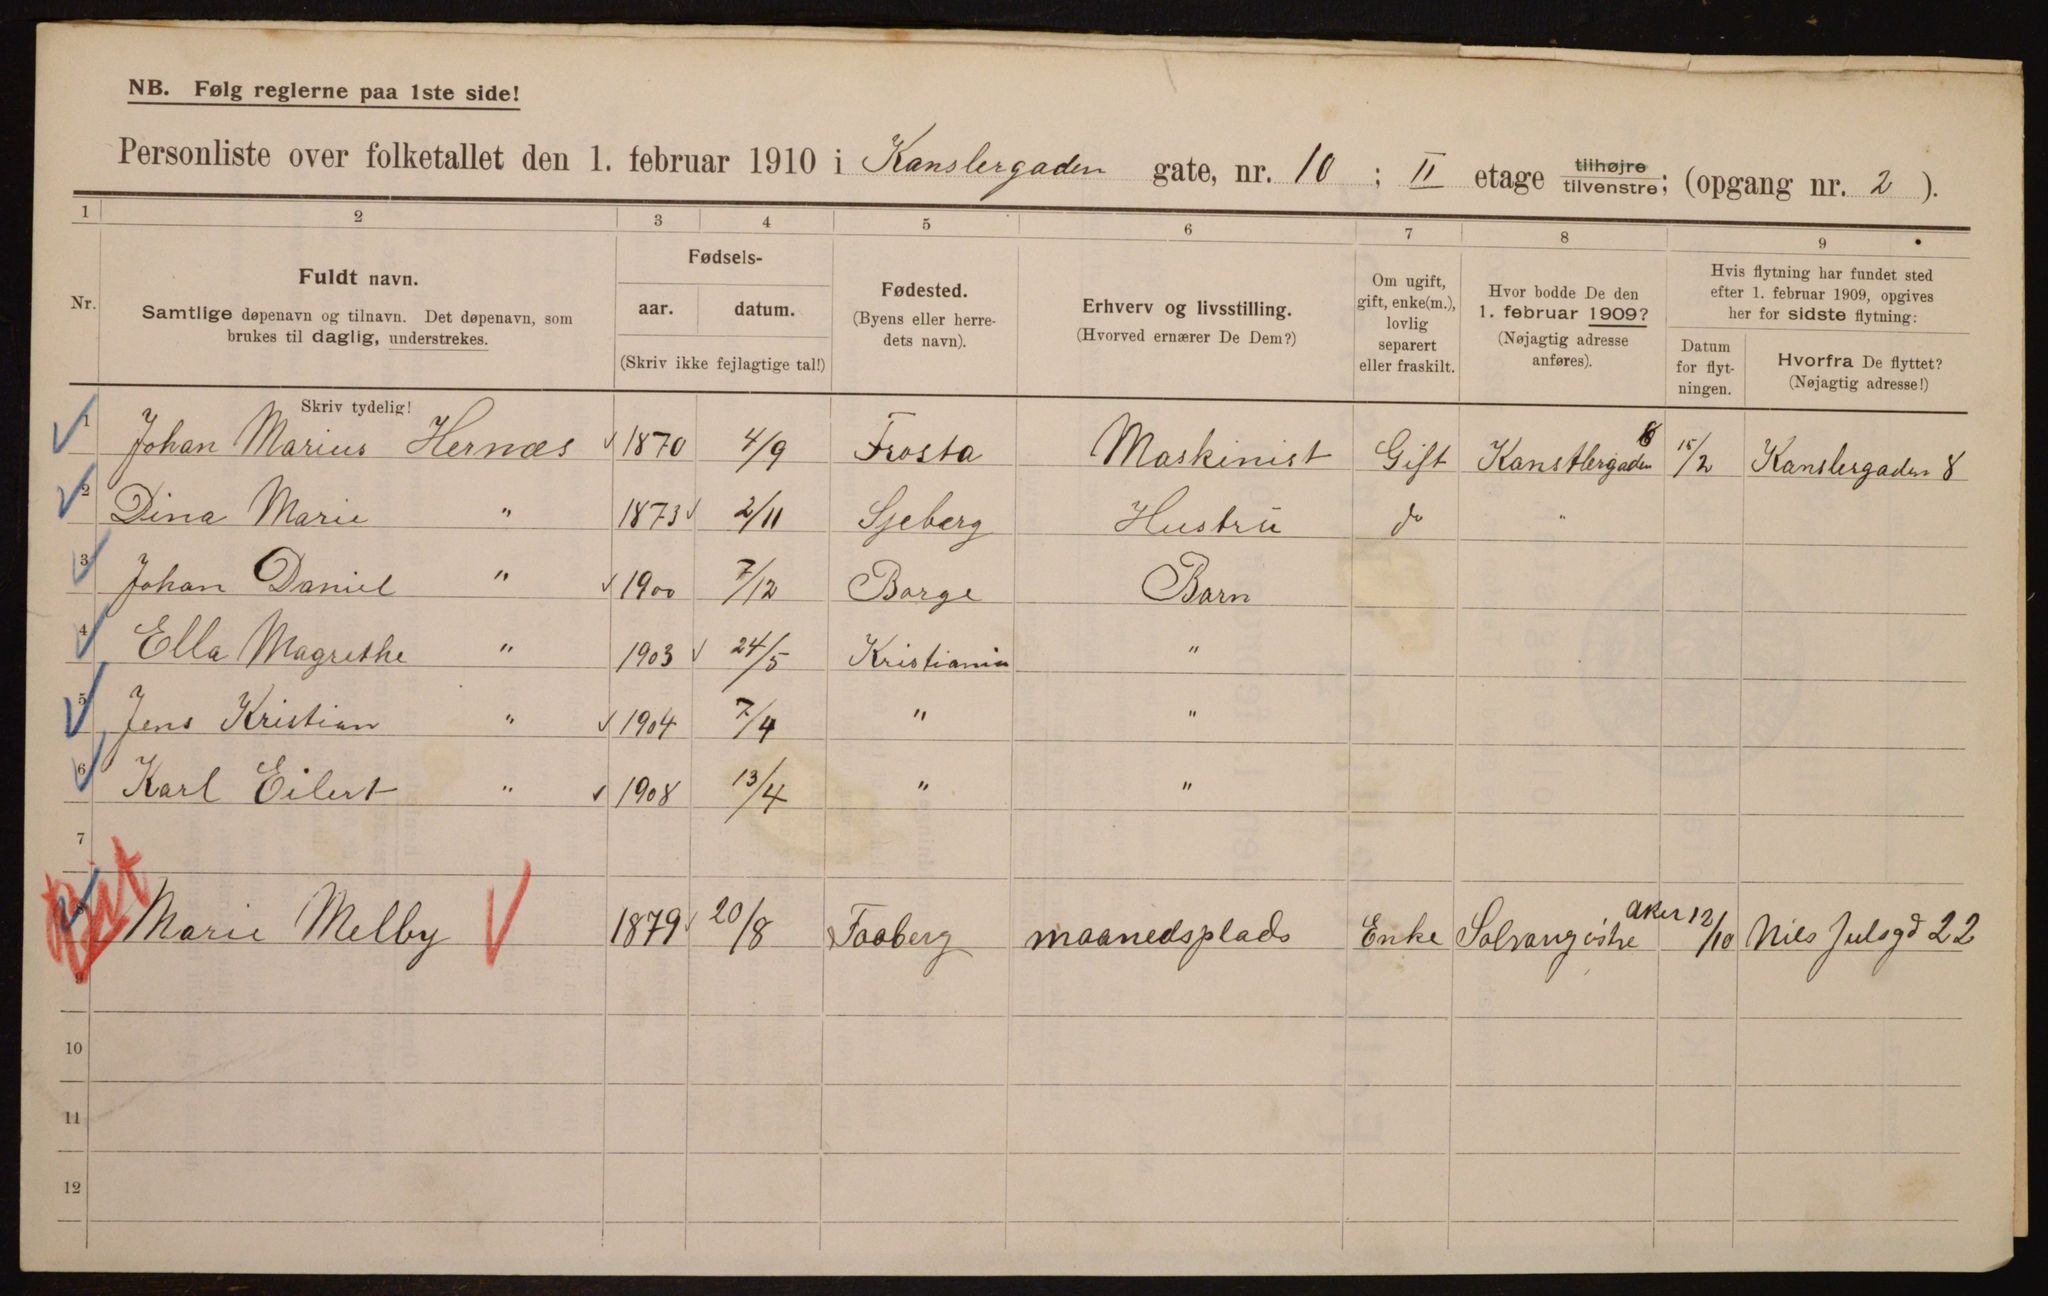 NB. Følg reglerne paa 1ste side!
Personliste over folketallet den 1. februar 1910 i Kanslergaden gate, nr. 10 ; II etage tilhøjre tilvenstre; (opgang nr. 2 ).
1 2 3 4 5 6 7 8 9
Nr.
Fuldt navn.
Samtlige døpenavn og tilnavn. Det døpenavn, som
brukes til daglig, understrekes.
Skriv tydelig!
Fødsels-
aar. datum.
(Skriv ikke fejlagtige tal!)
Fødested.
(Byens eller herre-
dets navn).
Erhverv og livsstilling.
(Hvorved ernærer De Dem?)
Om ugift,
gift, enke(m.),
lovlig
separert
eller fraskilt.
Hvor bodde De den
1. februar 1909?
(Nøjagtig adresse
anføres).
Hvis flytning har fundet sted
efter 1. februar 1909, opgives
her for sidste flytning:
Datum
for flyt-
ningen.
Hvorfra De flyttet?
(Nøjagtig adresse!)
1 Johan Marius Hernæs 1870 4/9 Frosta Maskinist Gift Kanstlergaden 8 15/2 Kanslergaden 8
2 Dina Marie " 1873 2/11 Sjeberg Hustru do "
3 Johan Daniel " 1900 7/12 Borge Barn
4 Ella Magrethe " 1903 24/5 Kristiania "
5 Jens Kristian " 1904 7/4 " "
6 Karl Eilert " 1908 13/4 " "
7
Marie Melby 1879 20/8 Faaberg maanedsplads Enke Solvang østre Aker 12/10 Niels Julsgd 22
9
10
11
12